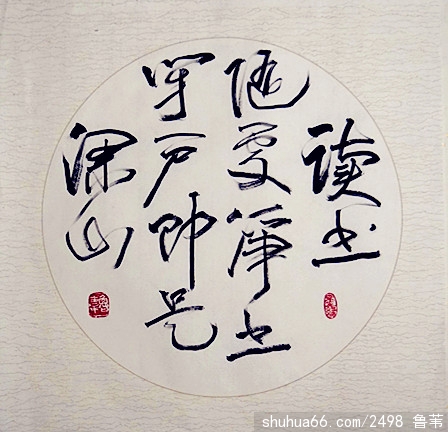 读书
随处净土
闭户即是
深山
shuhua66.com/2498 鲁苇